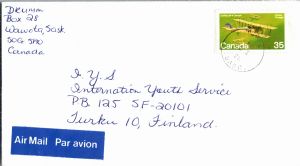 Drumm
Box 28
Wawota, Sask
S0G 5A0
Canada
Canada 35
I Y S
Internation Youth Service
PB 125 SF-20101
Turku 10, Finland.
Air Mail Par avion